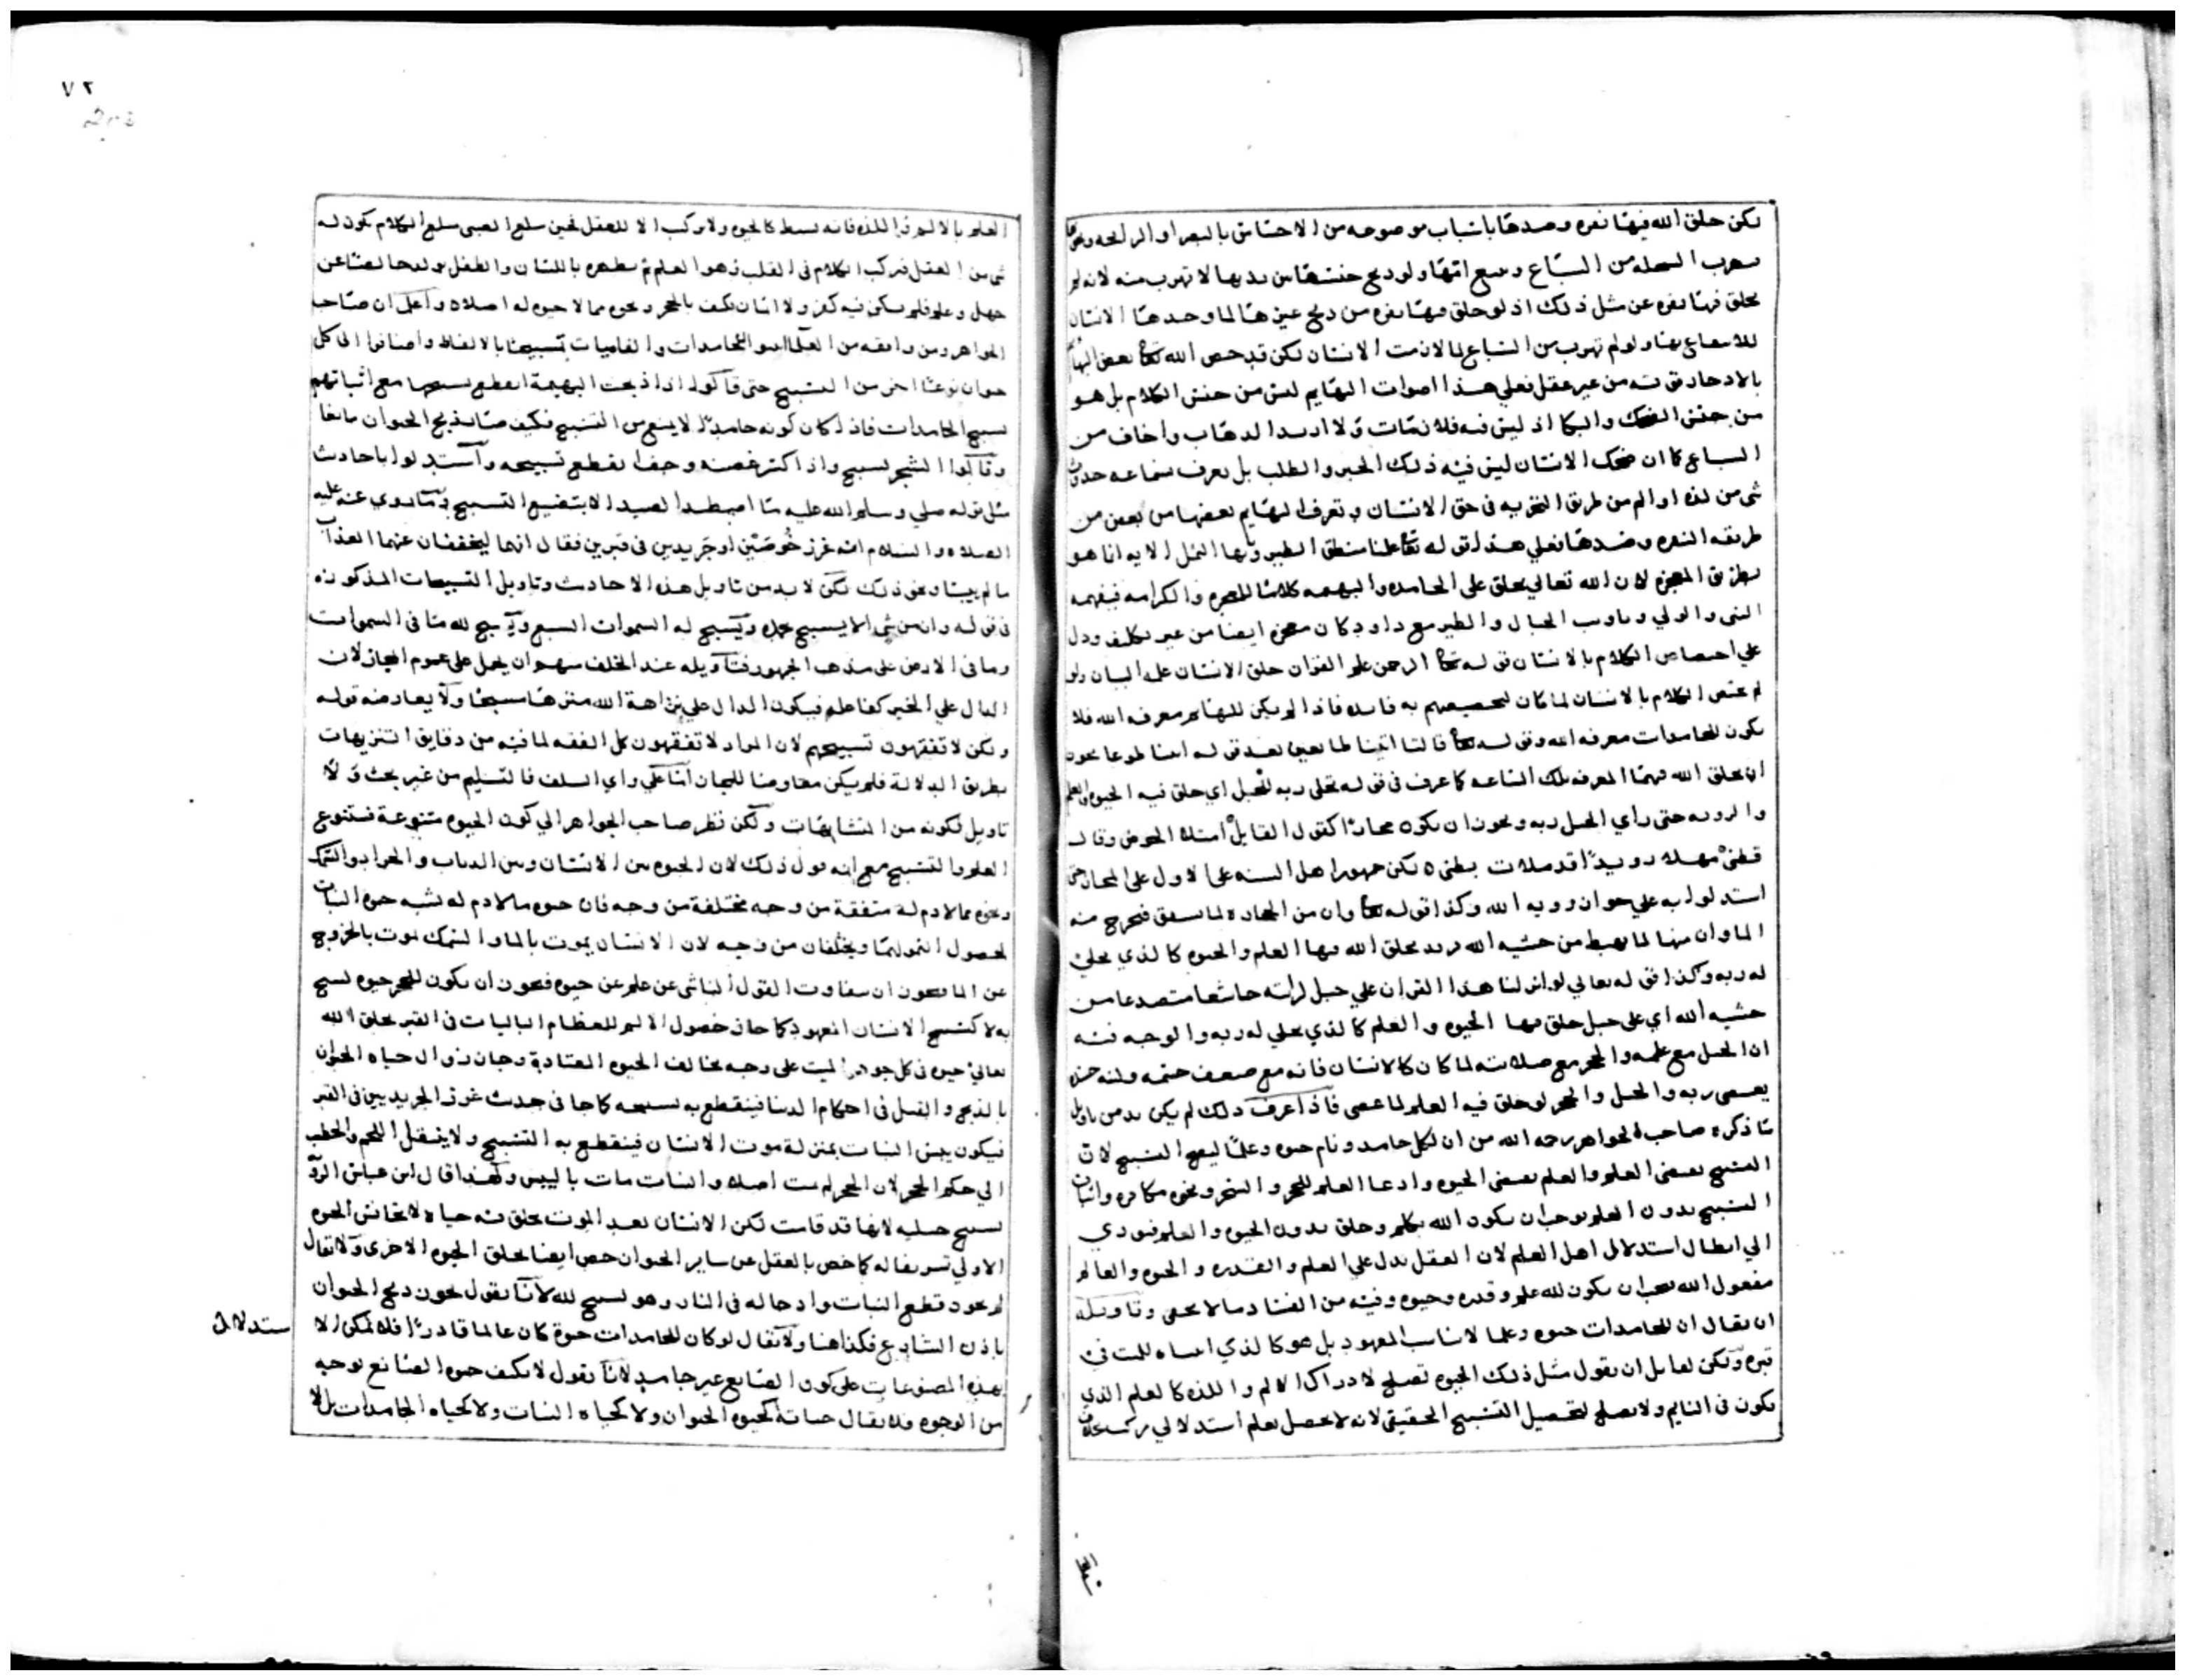 لكن خلق الله فيها نفره وضدها باسباب موضوعه من الاحساس بالبصر او الرايحه
تهرب السخله من السباع وسمع انها ولو ذبح جنسها بين يديها لا تهرب منه لانه لم
يخلق فيها نفره عن مثل ذلك اذ لو خلق فيها نفره من ذبح غيرها لما وجدها الانسان
للانتفاع بها ولو لم تهرب من السباع لما لازمت الانسان لكن قد خص الله تعالى بعض البهايم
بالادخار قوته من غير عقل فعلي هذا اصوات البهايم ليس من جنس الكلام بل هو
من جنس الضحك والبكا اذ ليس فيه فلان مات ولا اريد الذهاب واخاف من
السباع كما ان ضحك الانسان ليس فيه ذلك الخبر والطلب بل يعرف بسماعه حدوث
شي من لذه او الم من طريق التجربه في حق الانسان وتعرف البهايم بعضها من بعض من
طريقه النفره وضدها فعلي هذا قوله تعالى علمنا منطق الطير ويا ايها النمل الايه انما هو
بطريق المعجزه لان الله تعالي يخلق على الجامده والبهيمه كلاما للمعجزه والكرامه فيفهمه
النبي والولي وتاويب الجبال والطير مع داود كان معجزه ايضا من غير تكلف ودل
علي اختصاص الكلام بالانسان قوله تعالى الرحمن علم القران خلق الانسان علمه البيان ولو
لم يختص الكلام بالانسان لما كان لتخصيصهم به فايده فاذا لم يكن للبهايم معرفه الله فلا
يكون للجامدات معرفه الله وقوله تعالى قالتا اتينا طايعين بعد قوله ايتيا طوعا يجوز
ان يخلق الله فيهما المعرفه تلك الساعه كما عرف في قوله تجلى ربه للجبل اي خلق فيه الحيوه والعلم
والرويه حتى راي الجبل ربه ويجوز ان يكون مجازا كقول القايل امتلا الحوض وقال
قطني مهلا رويدا قد ملات بطني ه لكن جمهور اهل السنه على الاول على المجاز حتى
استدلوا به علي جواز رويه الله وكذا قوله تعالى وان من الحجاره لما يشقق فيخرج منه
الما وان منها لما يهبط من خشيه الله يريد يخلق الله فيها العلم والحيوه كالذي تجلى
له ربه وكذا قوله تعالي لو انزلنا هذا القران علي جبل لرايته خاشعا متصدعا من
خشيه الله اي على جبل خلق فيها الحيوه والعلم كالذي تجلي له ربه والوجه فيه
ان الجبل مع عظمه والحجر مع صلابته لما كان كالانسان فانه مع ضعف جثته ولينه
يعصي ربه والجبل والحجر لو خلق فيه العلم لما عصى فاذا عرف ذلك لم يكن بد من تاويل
ما ذكره صاحب الجواهر رحمه الله من ان لكل جامد ونام حيوه وعلما ليصح التسبيح لان
التسبيح يقتضي العلم والعلم يقتضي الحيوه وادعا العلم للحجر والشجر ونحوه مكابره واثبات
التسبيح بدون العلم يوجب ان يكون الله تكلم وخلق بدون الحيوه والعلم فيودي
الي ابطال استدلال اهل العلم لان العقل يدل علي العلم والقدره والحيوه والعالم
مفعول الله يجب ان يكون لله علم وقدره وحيوه وفيه من الفساد ما لا يخفى وتاويله
ان يقال ان للجامدات حيوه وعلما لا يناسب المعهود بل هو كالذي للميت في
قبره ولكن لقايل ان يقول مثل ذلك الحيوه تصلح لادراك الالم واللذه كالعلم الذي
يكون في النايم ولا يصلح لتحصيل التسبيح الحقيقي لانه لا يحصل بعلم استدلالي
٧٢
العلم بالالم واللذه فانه بسيط كالحيوه ولا مركب الا للعقل فحين سلع الصبي سلع الكلام يكون له
شي من العقل فيركب الكلام في القلب وهو العلم ثم يظهره باللسان والطفل
جهل وعلم فلم يكن فيه كفر ولا ايمان فكيف بالحجر ونحوه مما لا حيوه له اصلا ه واعلم ان صاحب
الجواهر ومن وافقه من العلما اثبتوا للجامدات والناميات تسبيحا بالالفاظ واضافوا الى كل
حيوان نوعا اخر من التسبيح حتى قالوا اذا ذبحت البهيمة انقطع تسبيحها مع اثباتهم
تسبيح الجامدات فاذا كان كونه جامدا لا يمنع من التسبيح فكيف صار ذبح الحيوان مانعا
وقالوا الشجر يسبح واذا كسر غصنه وجف انقطع تسبيحه واستدلوا باحاديث
مثل قوله صلي وسلم الله عليه ما اصطيد الصيد الا بتضييع التسبيح وما روي عنه عليه
الصلاه والسلام انه غرز خوصتين او جريدين في قبرين فقال انهما ليخففان عنهما العذاب
ما لم ييبسا ونحو ذلك لكن لا بد من تاويل هذه الاحاديث وتاويل التسبيحات المذكوره
في قوله وان من شي الا يسبح بحمده ويسبح له السموات السبع ويسبح لله ما في السموات
وما في الارض على مذهب الجمهور فتاويله عند الخلف سهو ان يحمل على عموم المجاز لان
الدال علي الخير كفاعله فيكون الدال علي نزاهة الله منزها مسبحا ولا يعارضه قوله
ولكن لا تفقهون تسبيحهم لان المراد لا تفقهون كل الفقه لما فيه من دقايق التنزيهات
بطريق الدلالة فلم يكن معارضا للمجاز اما علي راي السلف فالتسليم من غير بحث ولا
تاويل لكونه من المتشابهات ولكن نظر صاحب الجواهر الي كون الحيوه متنوعة فتتنوع
العلم والتسبيح مع انه ذلك لان الحيوه بين الانسان وبين الذباب والجراد والسمك
ونحوه مما لا دم له متفقة من وجه مختلفة من وجه فان حيوه ما لا دم له تشبه حيوه النبات
لحصول النمو لهما ويختلفان من وجه لان الانسان يموت بالما والسمك يموت بالخروج
عن الما فيجوز ان يتفاوت القول الناشي عن علم عن حيوه فيجوز ان يكون للحجر حيوه تسبح
به لا كتسبيح الانسان المعهود كما جاز حصول الالم للعظام الباليات في القبر بخلق الله
تعالي حيوه في كل جوهر الميت على وجه يخالف الحيوه المعتادة وجاز زوال حياه الحيوان
بالذبح والقتل في احكام الدنيا فينقطع به تسبيحه كما جا في حديث غرز الجريدين في القبر
فيكون يبس النبات بمنزلة موت الانسان فينقطع به التسبيح ولا ينتقل اللحم والحطب
الي حكم الحجر لان الحجر لم يمت اصلا والنبات مات باليبس ولهذا قال ابن عباس
تسبح لانها قد قامت لكن الانسان بعد الموت يخلق فيه حياه لا تجانس الحيوه
الاولي تشريفا له كما خص بالعقل عن ساير الحيوان خص ايضا بخلق الحيوه الاخرى ولا يقال
لم يجوز قطع النبات وادخاله في النار وهو يسبح لله لانا نقول يجوز ذبح الحيوان
باذن الشارع فكذا هنا ولا يقال لو كان للجامدات حيوة كان عالما قادرا فلا يمكن الا
ستدلال
بهذه المصنوعات على كون الصانع غير جامد لانا نقول لا يكيف حيوه الصانع بوجه
من الوجوه فلا يقال حياته كحيوه الحيوان ولا كحياه النبات ولا كحياه الجامدات بل لا